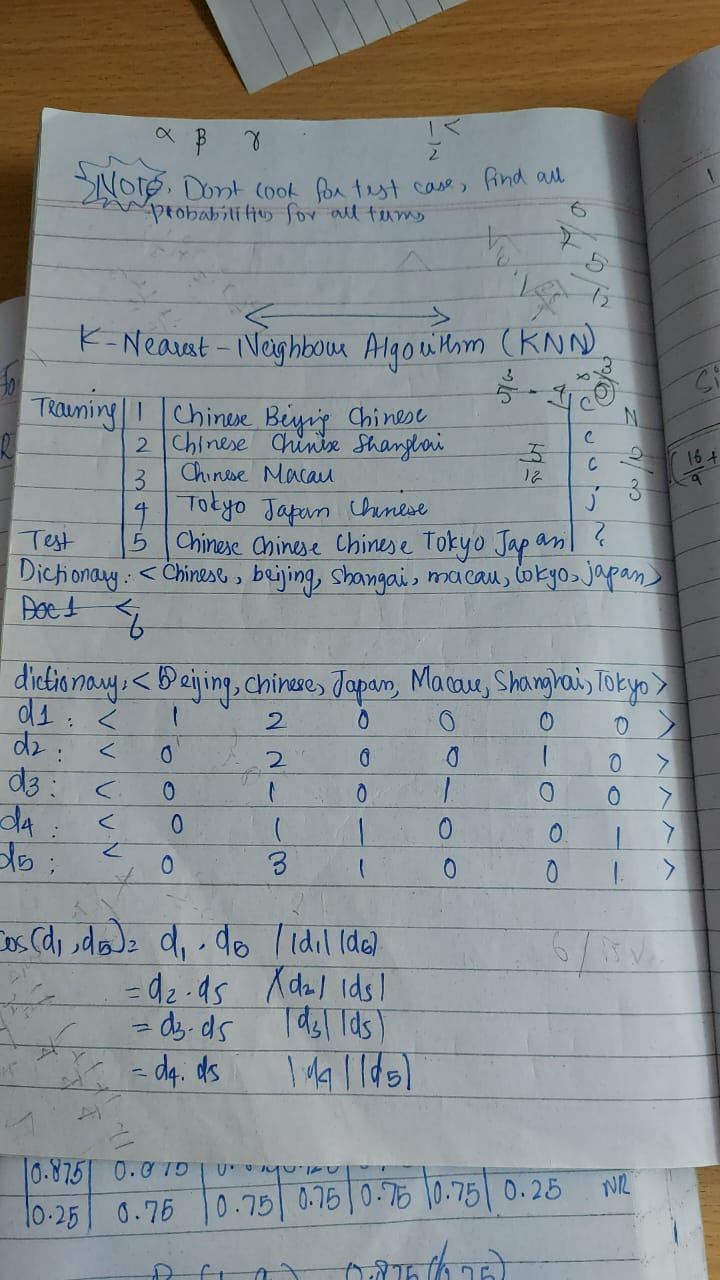 α β γ 1/2 <
Note. Dont look for test case, find all
probabilities for all terms
6
7 5
12
K-Nearest-Neighbour Algorithm (KNN)
3/5 - 9
Training 1 Chinese Beijing Chinese c N
2 Chinese Chinese Shanghai c
5/12
3 Chinese Macau c 3
4 Tokyo Japan Chinese j
Test 5 Chinese Chinese Chinese Tokyo Japan ?
Dictionary: < Chinese, beijing, Shangai, macau, tokyo, japan>
Doc 1 <
6
dictionary: < Beijing, Chinese, Japan, Macau, Shanghai, Tokyo >
d1 : < 1 2 0 0 0 0 >
d2 : < 0 2 0 0 1 0 >
d3 : < 0 1 0 1 0 0 >
d4 : < 0 1 1 0 0 1 >
d5 : < 0 3 1 0 0 1 >
cos(d1, d5) = d1 . d5 / |d1| |d5|
= d2 . d5 / |d2| |d5|
= d3 . d5 |d3| |d5|
= d4 . d5 |d4| |d5|
16 +
9
0.875
0.25 0.75 0.75 0.75 0.75 0.75 0.25 NR